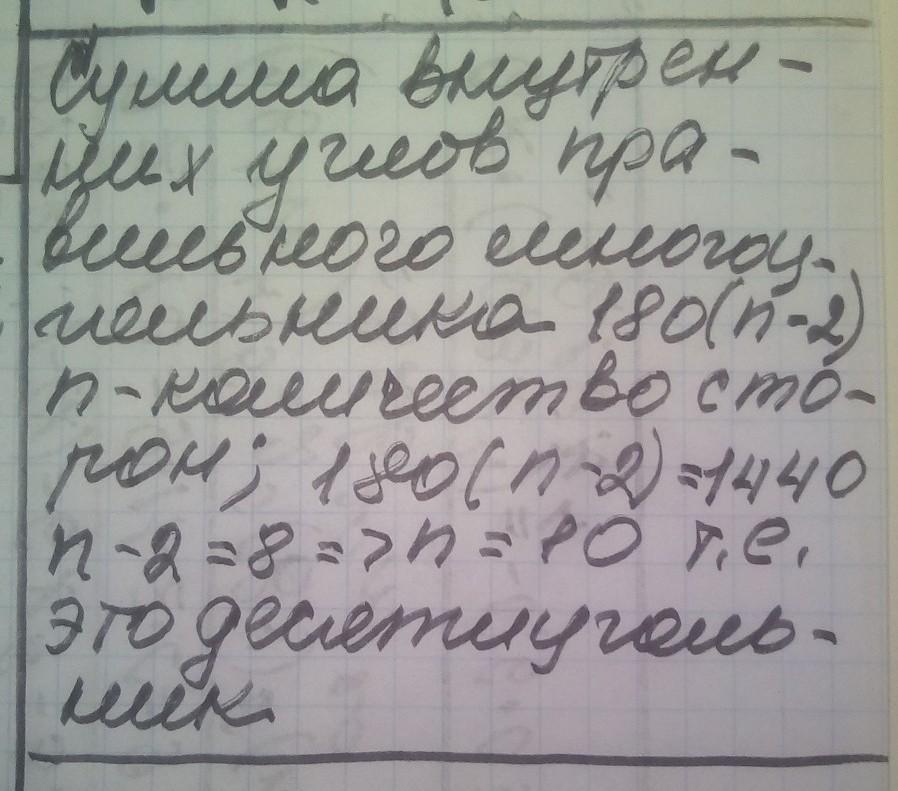 Сумма внутрен-
них углов пра-
вильного многоу-
гольника 180(n-2)
n-количество сто-
рон; 180(n-2)=1440
n-2=8=>n=10 т.е.
это десятиуголь-
ник